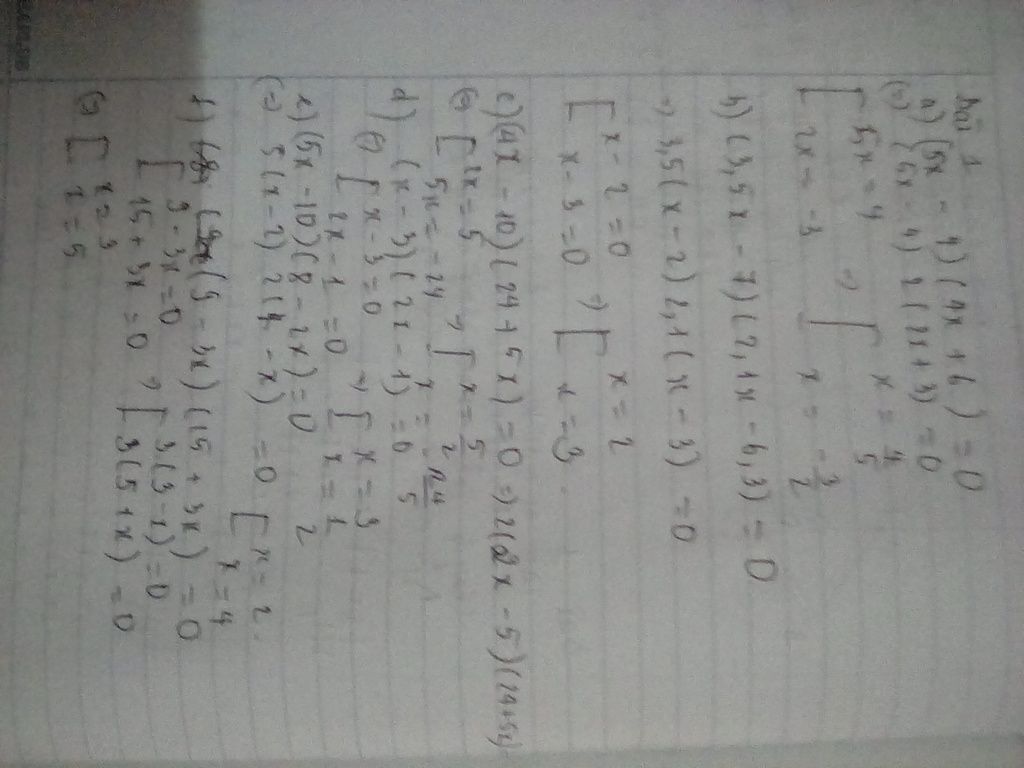 Bài 1
a) (5x - 4)(4x + 6) = 0
(=) (5x - 4) 2(2x + 3) = 0
[ 5x = 4 => [ x = 4/5
2x = -3 x = -3/2
b) (3,5x - 7)(2,1x - 6,3) = 0
=> 3,5(x - 2) 2,1(x - 3) = 0
[ x - 2 = 0 => [ x = 2
x - 3 = 0 x = 3
c) (4x - 10)(24 + 5x) = 0 => 2(2x - 5)(24+5x)
(=) [ 2x = 5 => [ x = 5/2
5x = -24 x = -24/5
d) (x - 3)(2x - 1) = 0
(=) [ x - 3 = 0 => [ x = 3
2x - 1 = 0 x = 1/2
e) (5x - 10)(8 - 2x) = 0
(=) 5(x - 2) 2(4 - x) = 0 [ x = 2
x = 4
f) (9 - 3x)(15 + 3x) = 0
[ 9 - 3x = 0 => [ 3(3 - x) = 0
15 + 3x = 0 3(5 + x) = 0
(=) [ x = 3
x = 5